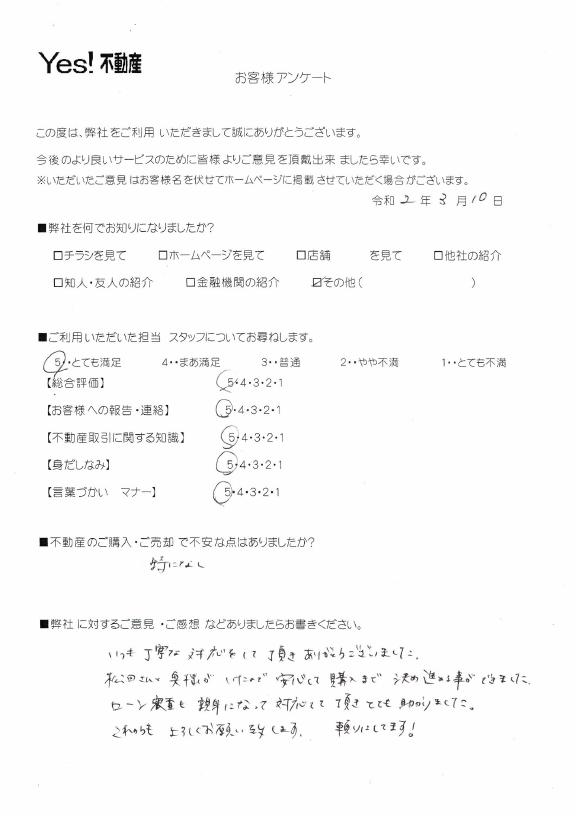 Yes! 不動産
お客様アンケート
この度は、弊社をご利用 いただきまして誠にありがとうございます。
今後のより良いサービスのために皆様よりご意見を頂戴出来 ましたら幸いです。
※いただいたご意見はお客様名を伏せてホームページに掲載させていただく場合がございます。
令和 2 年 3 月 10 日
■弊社を何でお知りになりましたか?
□チラシを見て □ホームページを見て □店舗 を見て □他社の紹介
□知人・友人の紹介 □金融機関の紹介 ☑その他( )
■ご利用いただいた担当 スタッフについてお尋ねします。
5・・とても満足 4・・まあ満足 3・・普通 2・・やや不満 1・・とても不満
【総合評価】 5・4・3・2・1
【お客様への報告・連絡】 5・4・3・2・1
【不動産取引に関する知識】 5・4・3・2・1
【身だしなみ】 5・4・3・2・1
【言葉づかい マナー】 5・4・3・2・1
■不動産のご購入・ご売却 で不安な点はありましたか?
特になし
■弊社に対するご意見・ご感想 などありましたらお書きください。
いつも丁寧な対応をして頂きありがとうございました。
松田さんと奥様がいたので安心して購入まで決め進める事ができました。
ローン審査も親身になって対応して頂きとても助かりました。
これからもよろしくお願い致します。 頼りにしてます!